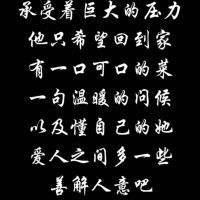 承受着巨大的压力
他只希望回到家
有一口可口的菜
一句温暖的问候
以及懂自己的她
爱人之间多一些
善解人意吧